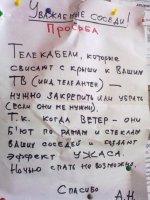 Уважаемые соседи!
Просьба
Телекабели, которые
свисают с крыши к вашим
ТВ (инд. телеантен) —
нужно закрепить или убрать
(если они не нужны).
Т.к. когда ветер - они
бьют по рамам и стеклам
ваших соседей и создают
эффект УЖАСА.
Ночью спать не возможно.
Спасибо
А.Н.